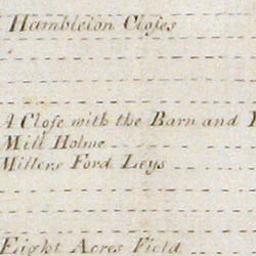 Hambleton Closes
A Close with the Barn and
Mill Holme
Millers Ford Leys
Eight Acres Field